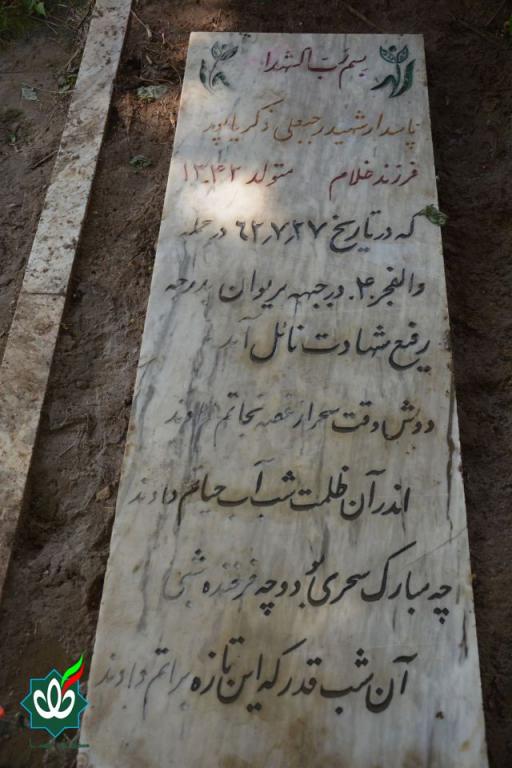 بسم رب الشهدا
پاسدار شهید رجبعلی ذکریاپور
فرزند غلام متولد ۱۳۴۲
که در تاریخ ۶۲٫۷٫۲۷ در حمله
والفجر ۴ در جبهه مریوان بدرجه
رفیع شهادت نائل آمد
دوش وقت سحر از غصه نجاتم دادند
اندر آن ظلمت شب آب حیاتم دادند
چه مبارک سحری بود و چه فرخنده شبی
آن شب قدر که این تازه براتم دادند